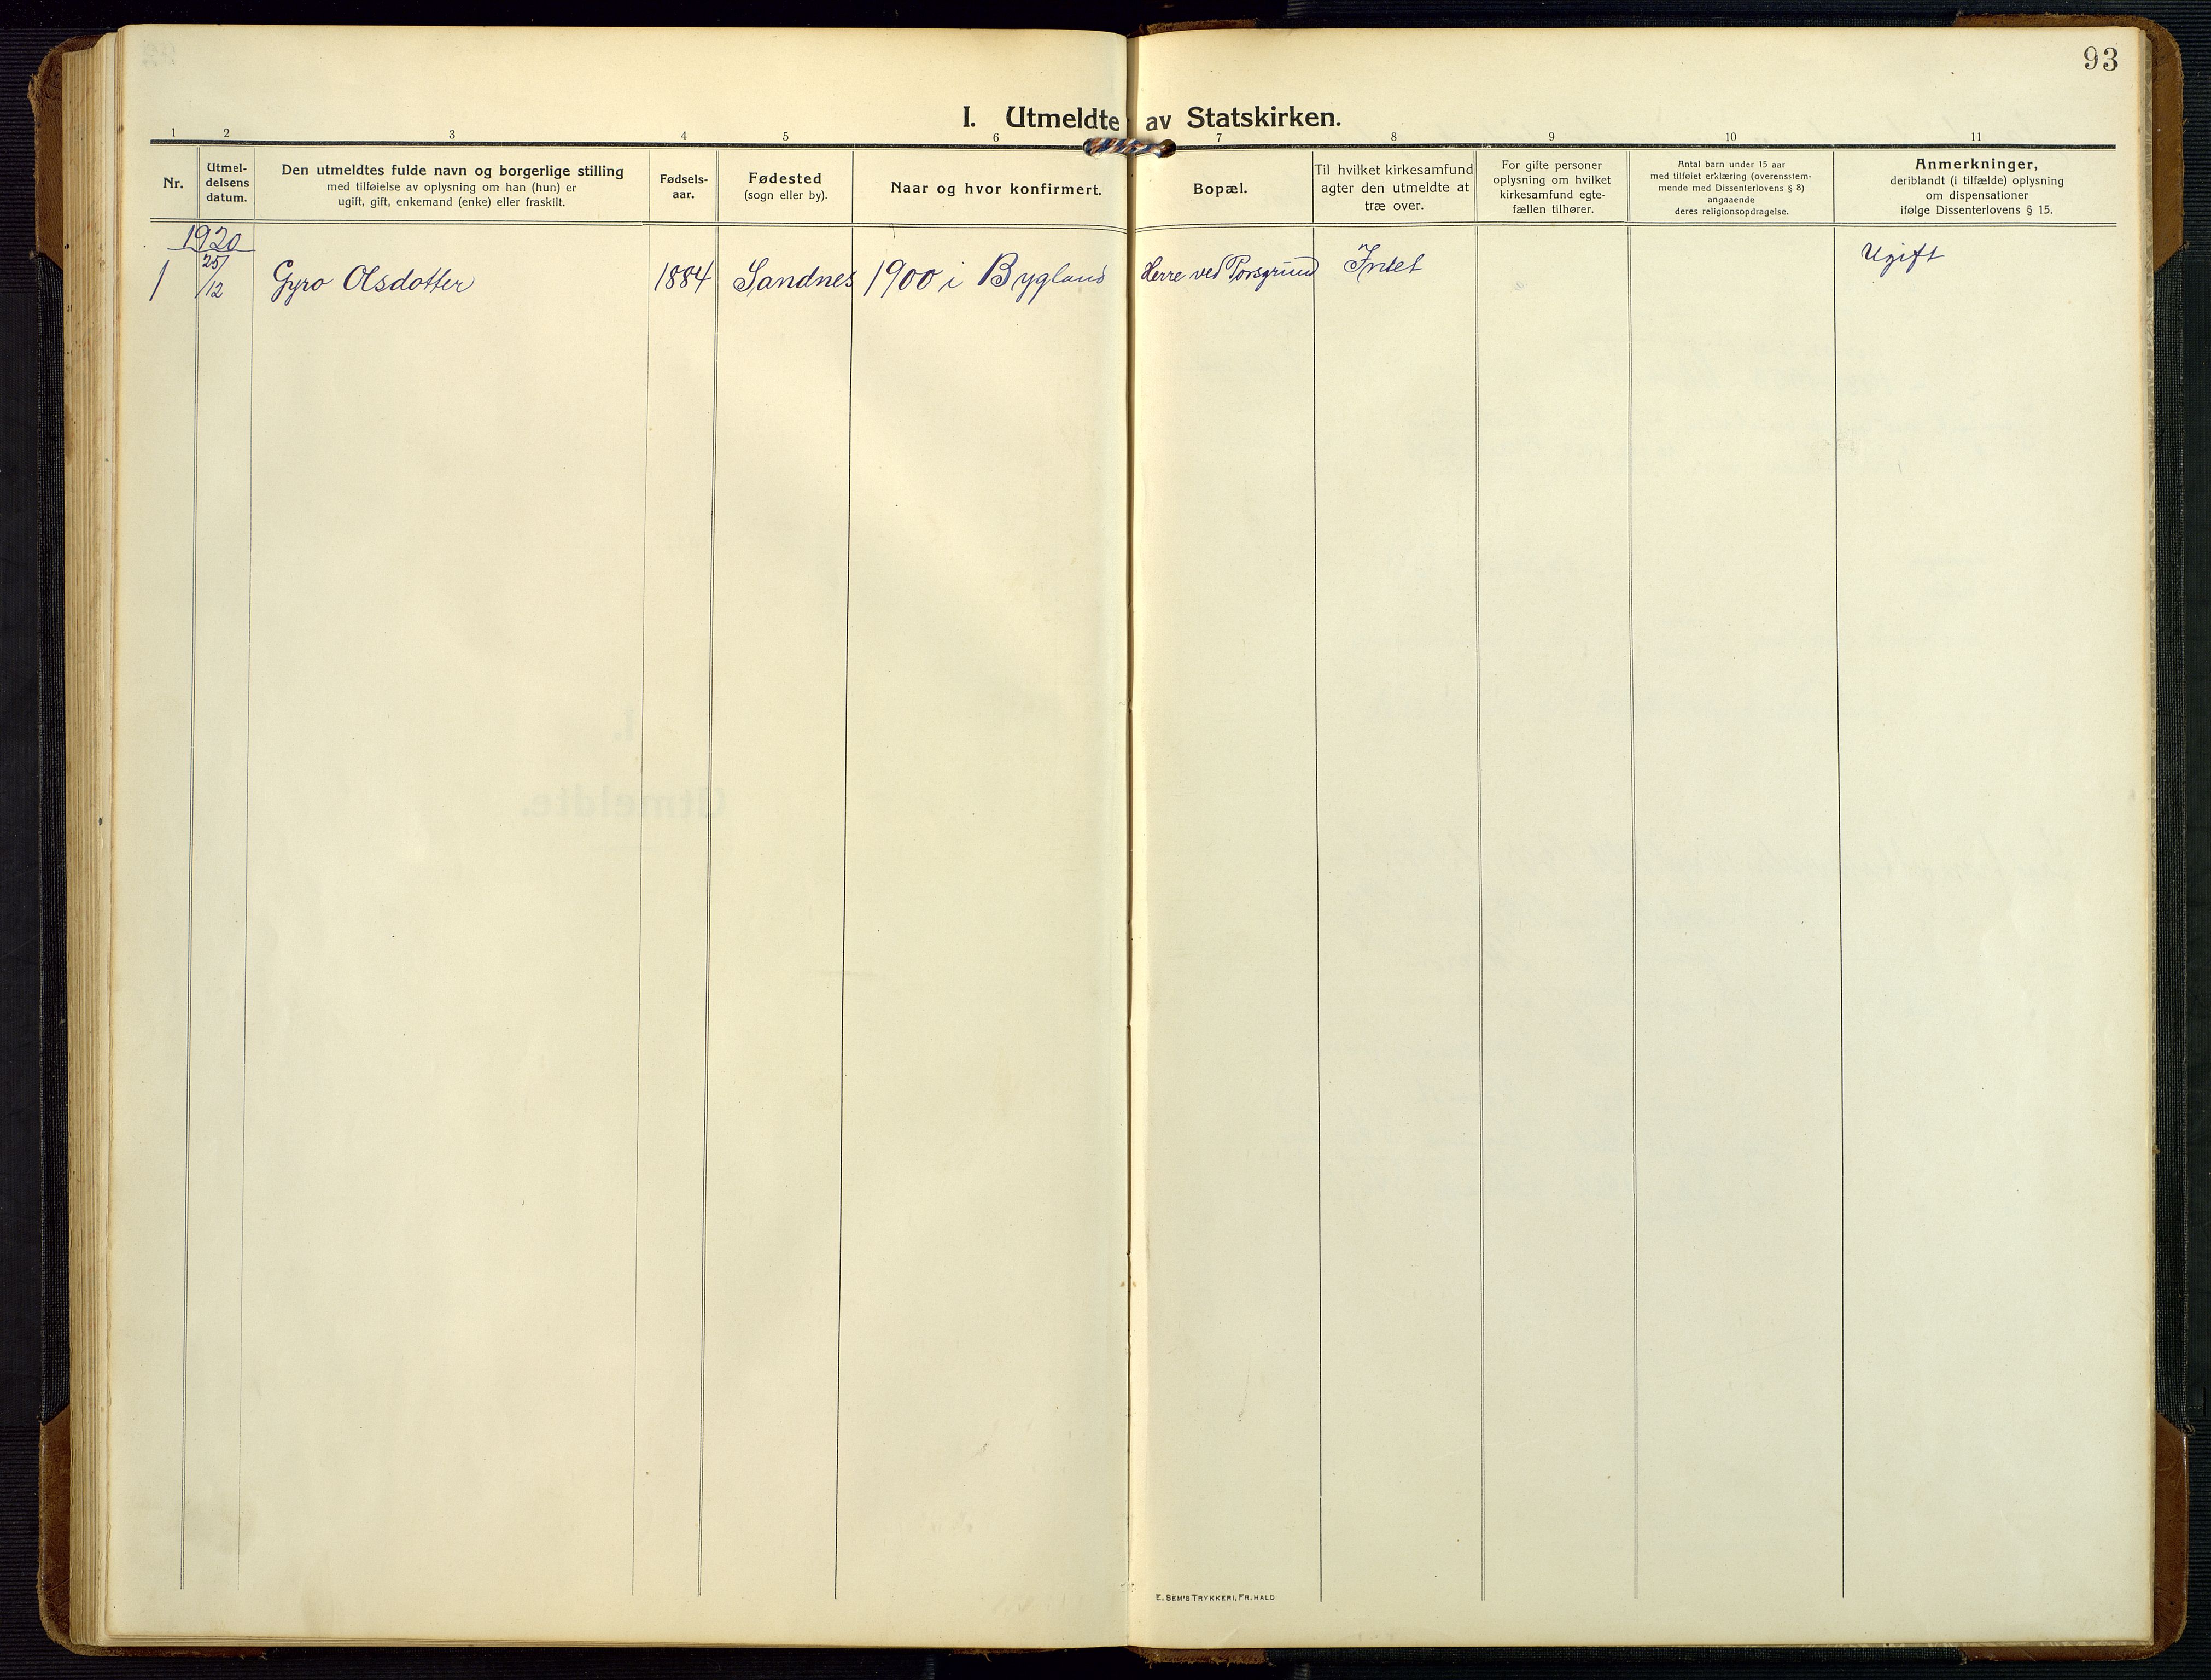 93
I. Utmeldte av Statskirken.
1 2 3 4 5 6 7 8 9 10 11
Nr.
Utmel-
delsens
datum.
Den utmeldtes fulde navn og borgerlige stilling
med tilføielse av oplysning om han (hun) er
ugift, gift, enkemand (enke) eller fraskilt.
Fødsels-
aar.
Fødested
(sogn eller by).
Naar og hvor konfirmert.
Bopæl.
Til hvilket kirkesamfund
agter den utmeldte at
træ over.
For gifte personer
oplysning om hvilket
kirkesamfund egte-
fællen tilhører.
Antal barn under 15 aar
med tilføiet erklæring (overensstem-
mende med Dissenterlovens § 8)
angaaende
deres religionsopdragelse.
Anmerkninger,
deriblandt (i tilfælde) oplysning
om dispensationer
ifølge Dissenterlovens § 15.
1920
1 25/12 Gyro Olsdotter 1884 Sandnes 1900 i Bygland Herre ved Porsgrund Intet Ugift
E. SEM'S TRYKKERI, FR. HALD